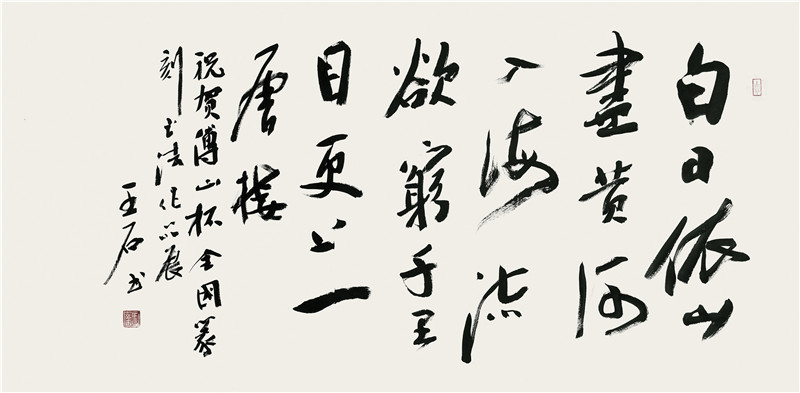 白日依山
盡黄河
入海流
欲窮千里
目更上一
層樓
祝贺傅山杯全國篆
刻书法作品展
王石书